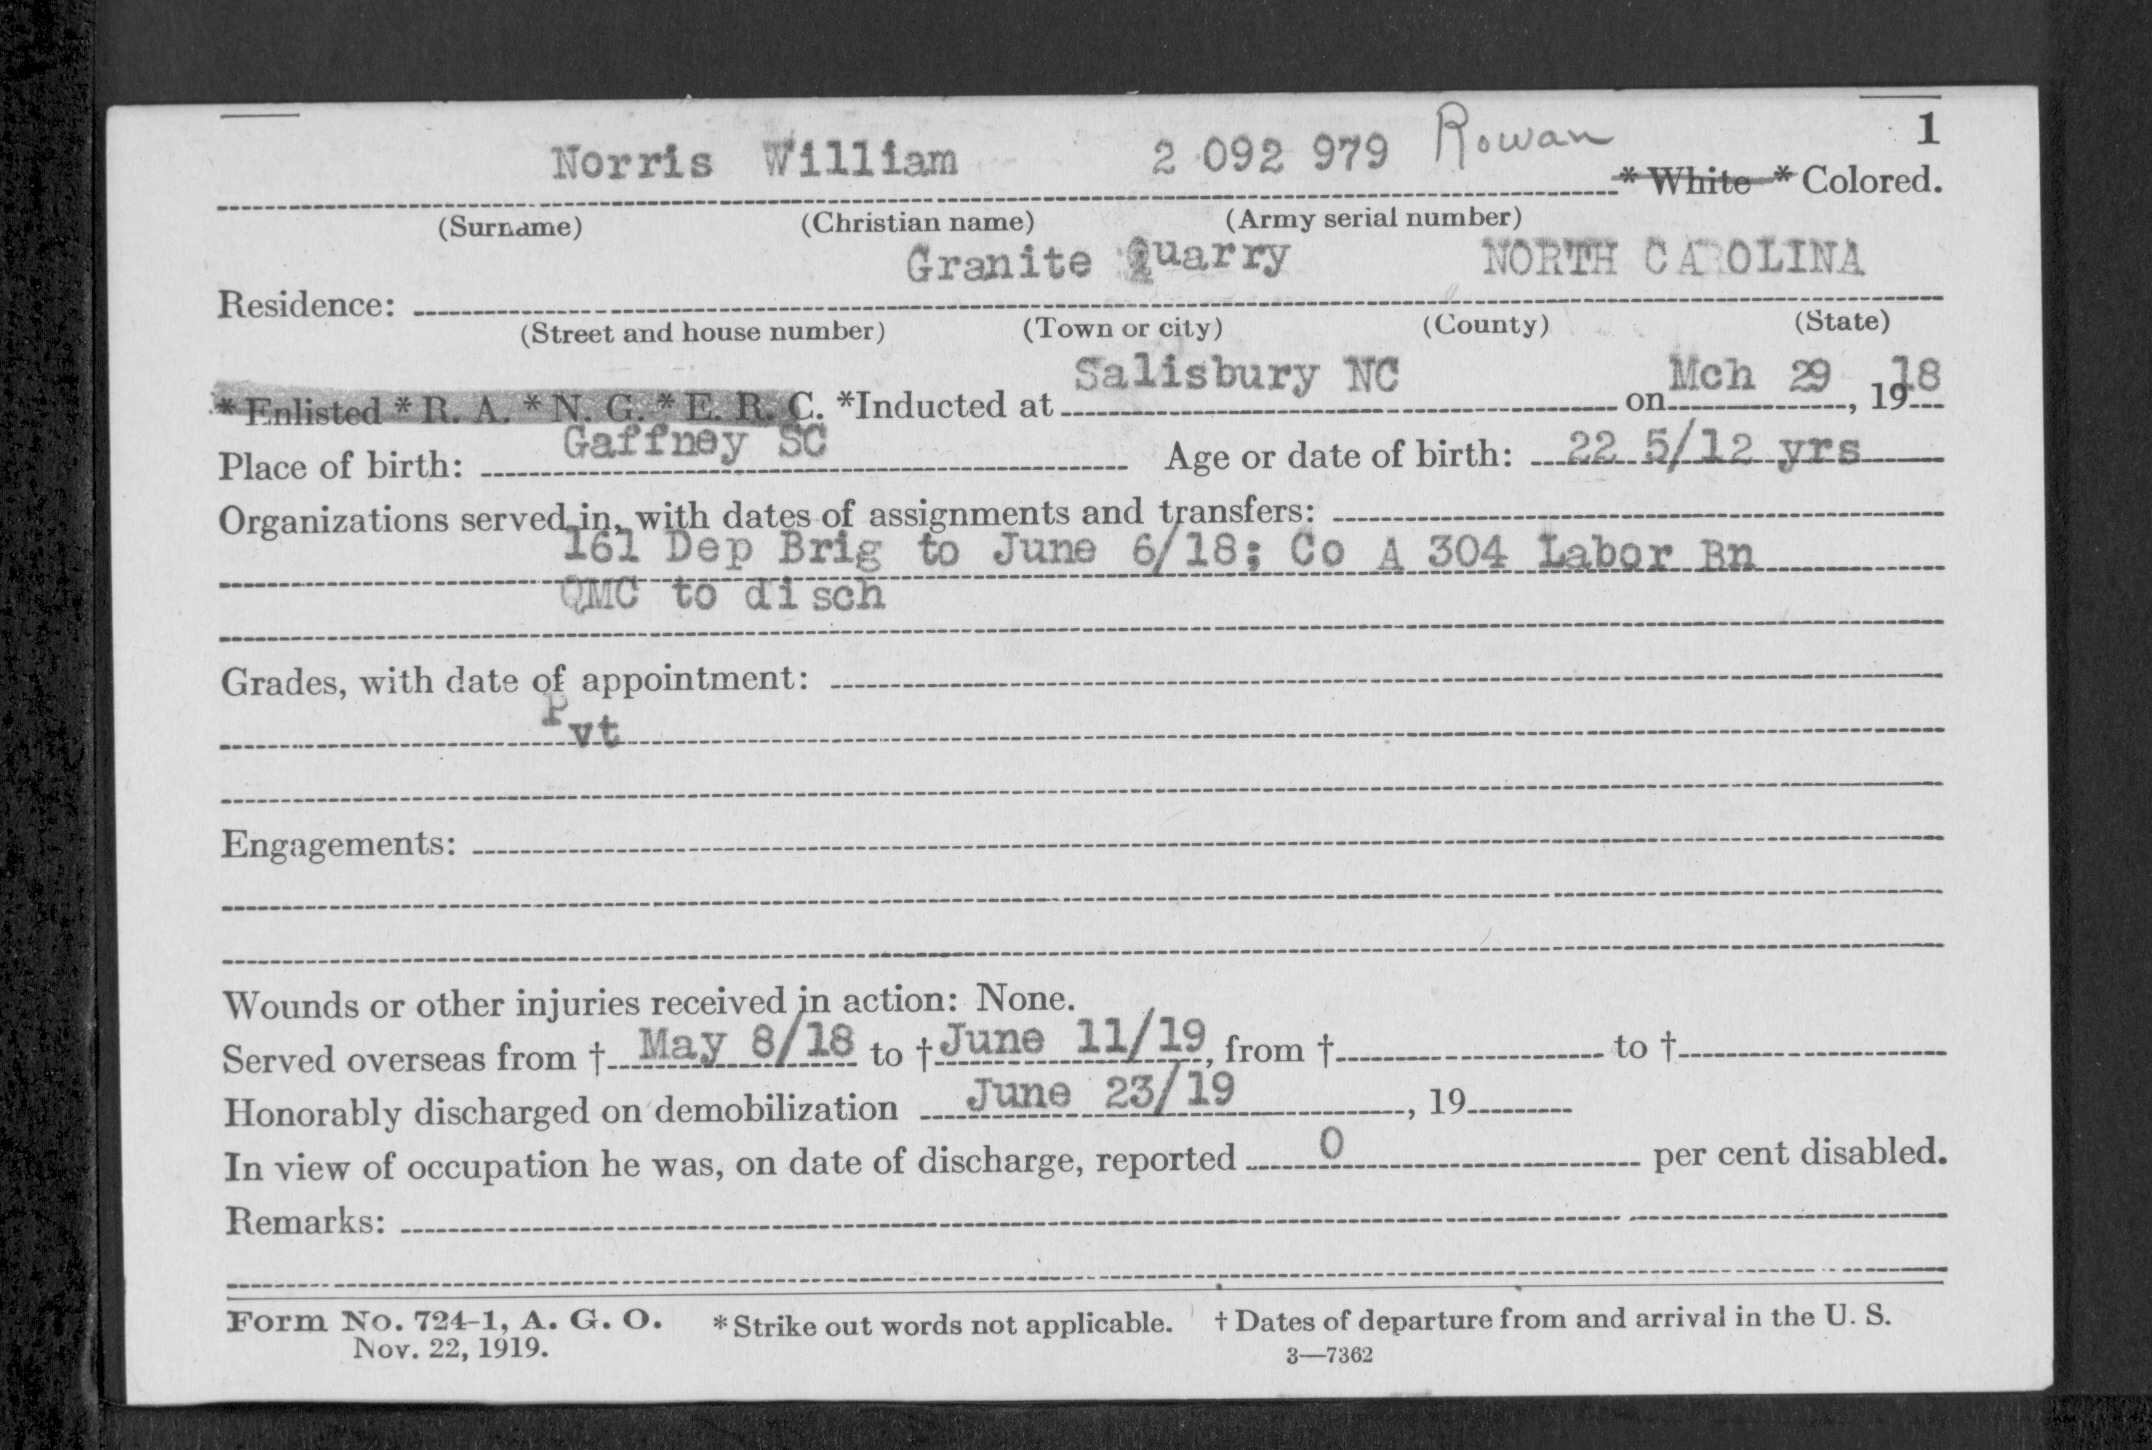 1
Norris William 2 092 979 Rowan * White * Colored.
(Surname) (Christian name) (Army serial number)
Granite Quarry NORTH CAROLINA
Residence:
(Street and house number) (Town or city) (County) (State)
* Enlisted * R. A. * N. G. * E. R. C. *Inducted at Salisbury NC on Mch 29, 1918
Place of birth: Gaffney SC Age or date of birth: 22 5/12 yrs
Organizations served in, with dates of assignments and transfers:
161 Dep Brig to June 6/18; Co A 304 Labor Bn
QMC to disch
Grades, with date of appointment:
Pvt
Engagements:
Wounds or other injuries received in action: None.
Served overseas from † May 8/18 to † June 11/19, from † to †
Honorably discharged on demobilization June 23/19, 19
In view of occupation he was, on date of discharge, reported 0 per cent disabled.
Remarks:
Form No. 724-1, A. G. O. * Strike out words not applicable. † Dates of departure from and arrival in the U. S.
Nov. 22, 1919. 3—7362